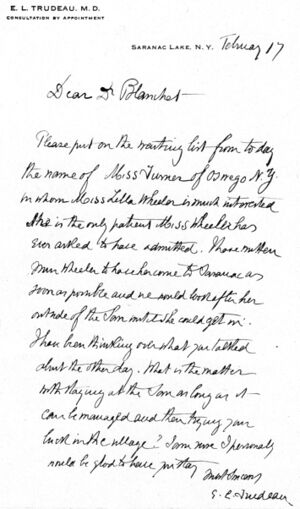 E. L. TRUDEAU, M. D.
CONSULTATION BY APPOINTMENT
SARANAC LAKE, N. Y. February 17
Dear Dr Blanchet
Please put on the waiting list from to day
the name of Miss Turner of Oswego N.Y.
in whom Miss Lilla Wheeler is much interested
She is the only patient Miss Wheeler has
ever asked to have admitted. I have written
Miss Wheeler to have her come to Saranac as
soon as possible and we would look after her
outside of the San until she could get in.
I have been thinking over what you talked
about the other day. What is the matter
with staying at the San as long as it
can be managed and then trying your
luck in the village? I am sure I personally
would be glad to have you stay
Most Sincerely
E. L. Trudeau